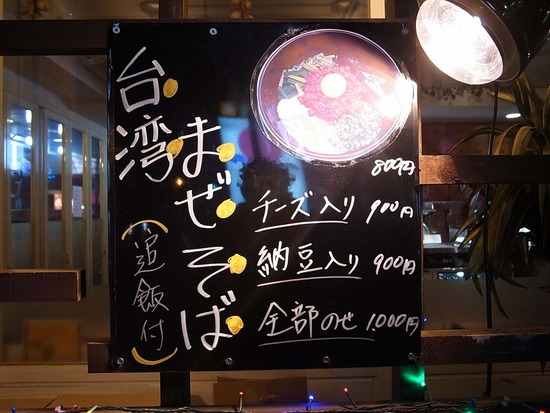 台湾
まぜそば
(追飯付)
800円
チーズ入り 900円
納豆入り 900円
全部のせ 1,000円